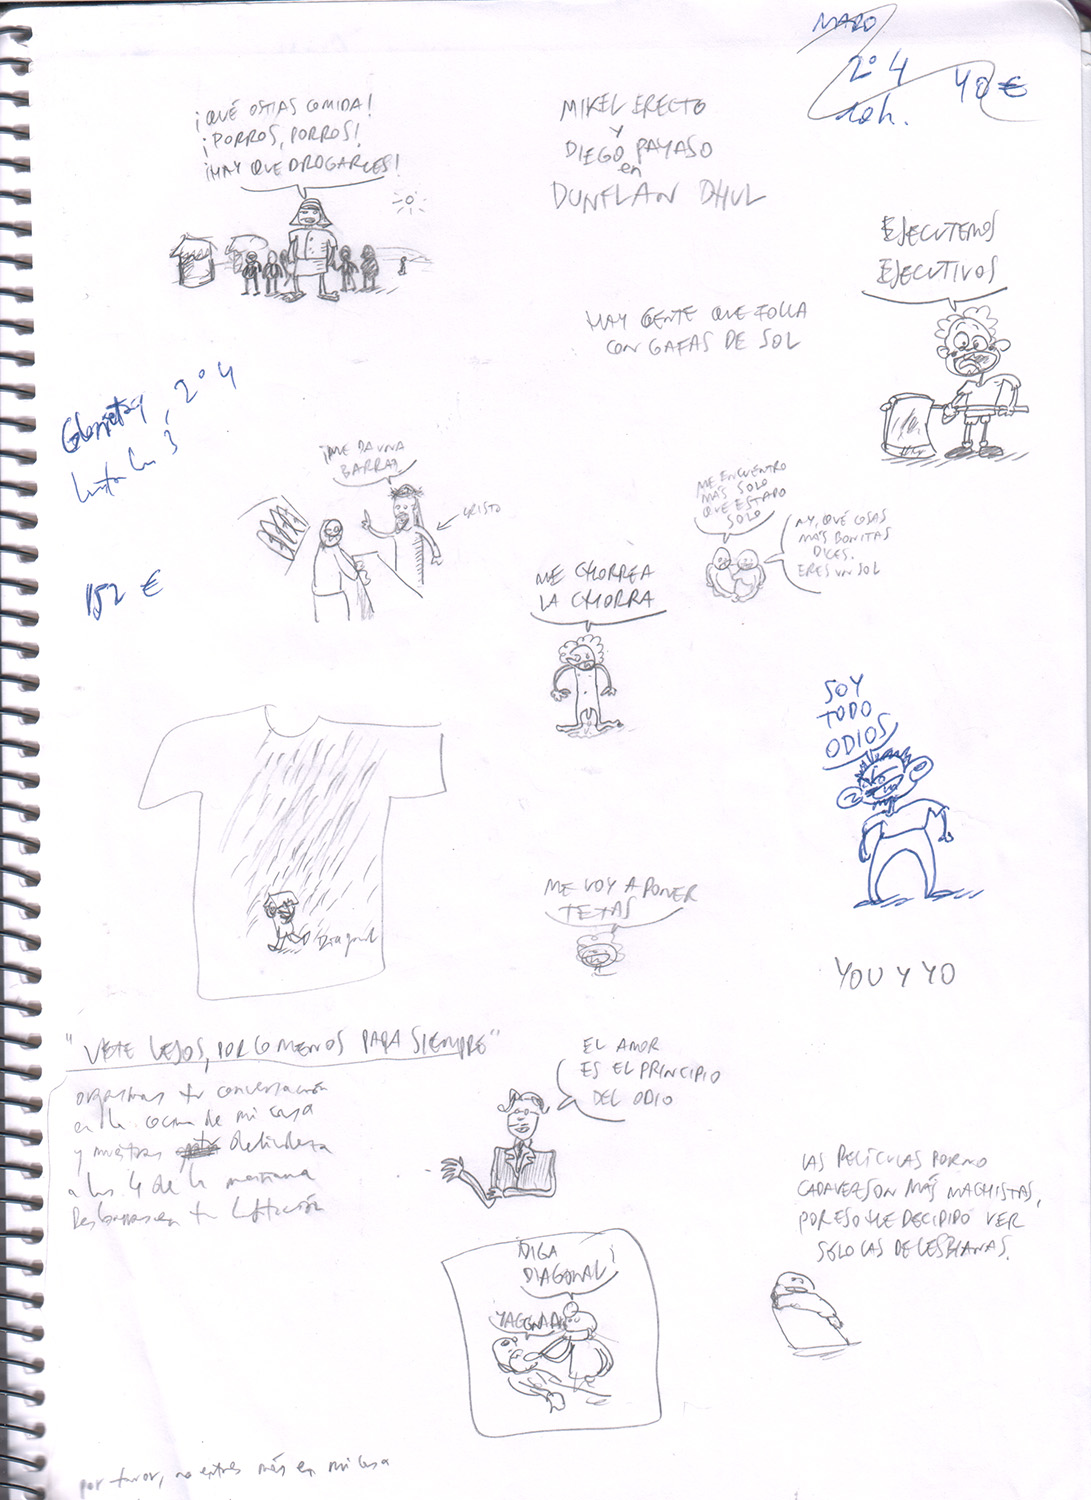 2º 4
40 €
10h.
¡QUÉ OSTIAS COMIDA!
¡PORROS, PORROS!
¡HAY QUE DROGARLES!
MIKEL ERECTO
Y
DIEGO PAYASO
en
DUNFLAN DHUL
EJECUTEMOS
EJECUTIVOS
HAY GENTE QUE FOLLA
CON GAFAS DE SOL
2º 4
152 €
¡ME DA UNA
BARRA?
CRISTO
ME ENCUENTRO
MÁS SOLO
QUE ESTADO
SOLO
AY, QUÉ COSAS
MÁS BONITAS
DICES.
ERES UN SOL
ME CHORREA
LA CHORRA
SOY
TODO
ODIOS
Diagonal
ME VOY A PONER
TETAS
YOU Y YO
"VETE LEJOS, POR LO MENOS PARA SIEMPRE"
organizas tu conversación
en la cocina de mi casa
y muestras delicadeza
a las 4 de la mañana
en tu
EL AMOR
ES EL PRINCIPIO
DEL ODIO
LAS PELÍCULAS PORNO
CADA VEZ SON MÁS MACHISTAS,
POR ESO HE DECIDIDO VER
SÓLO LAS DE LESBIANAS.
DIGA
DIAGONAL!
por favor, no entres más en mi casa